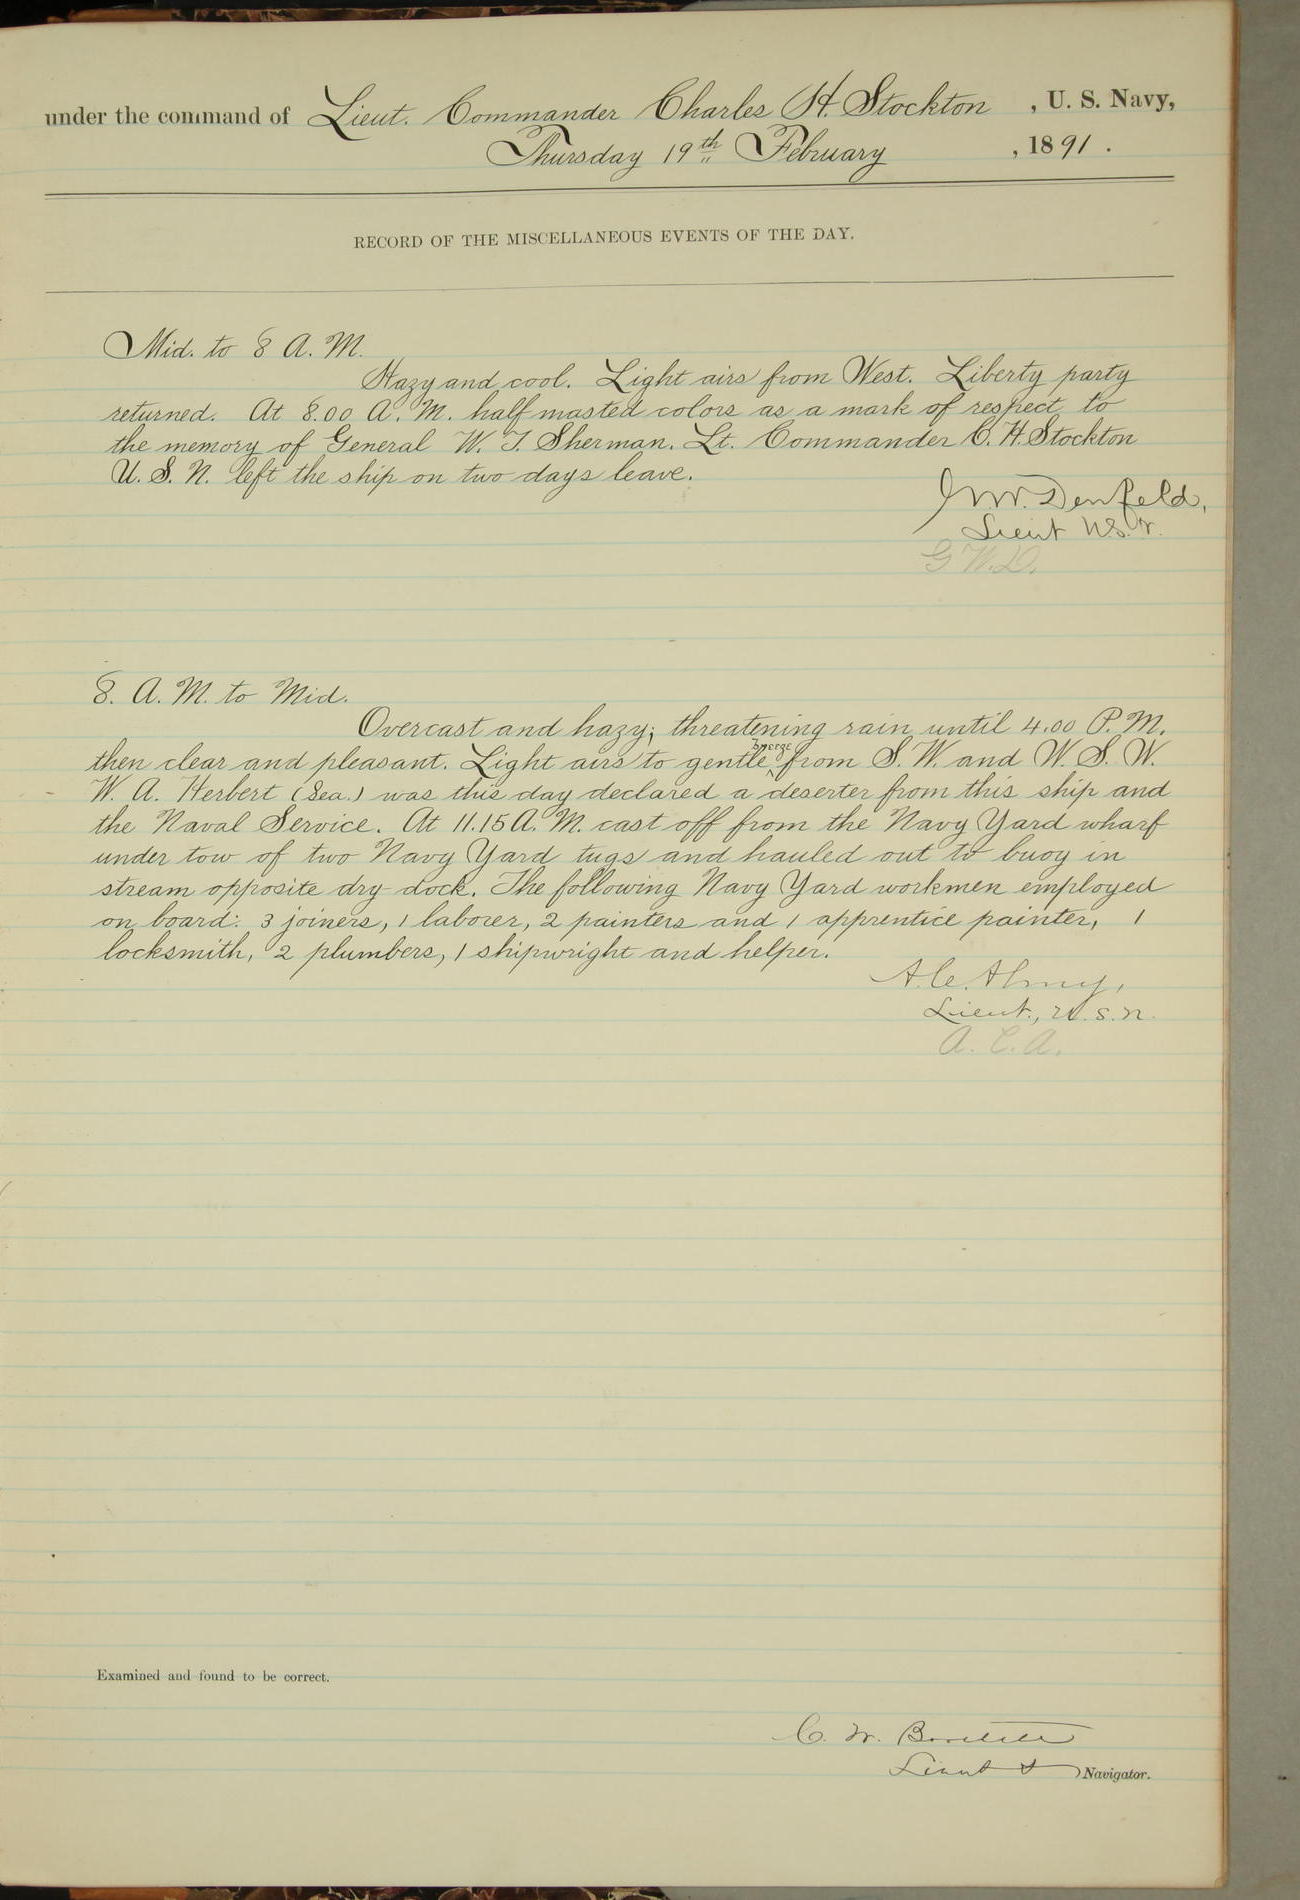 under the command of Lieut. Commander Charles H. Stockton, U. S. Navy,
Thursday 19th February, 1891.
RECORD OF THE MISCELLANEOUS EVENTS OF THE DAY.
Mid. to 8 A. M.
Hazy and cool. Light airs from West. Liberty party
returned. At 8.00 A. M. half masted colors as a mark of respect to
the memory of General W. T. Sherman. Lt. Commander C. H. Stockton
U. S. N. left the ship on two days leave.
G.W. Denfeld,
Lieut U.S.N.
G W. D.
8. A. M. to Mid.
Overcast and hazy; threatening rain until 4.00 P. M.
then clear and pleasant. Light airs to gentle breeze from S. W. and W. S. W.
W. A. Herbert (Sea.) was this day declared a deserter from this ship and
the Naval Service. At 11.15 A. M. cast off from the Navy Yard wharf
under tow of two Navy Yard tugs and hauled out to buoy in
stream opposite dry-dock. The following Navy Yard workmen employed
on board: 3 joiners, 1 laborer, 2 painters and 1 apprentice painter, 1
locksmith, 2 plumbers, 1 shipwright and helper.
A. C. Almy,
Lieut., U.S.N.
A. C. A.
Examined and found to be correct.
C. W.
Lieut & Navigator.